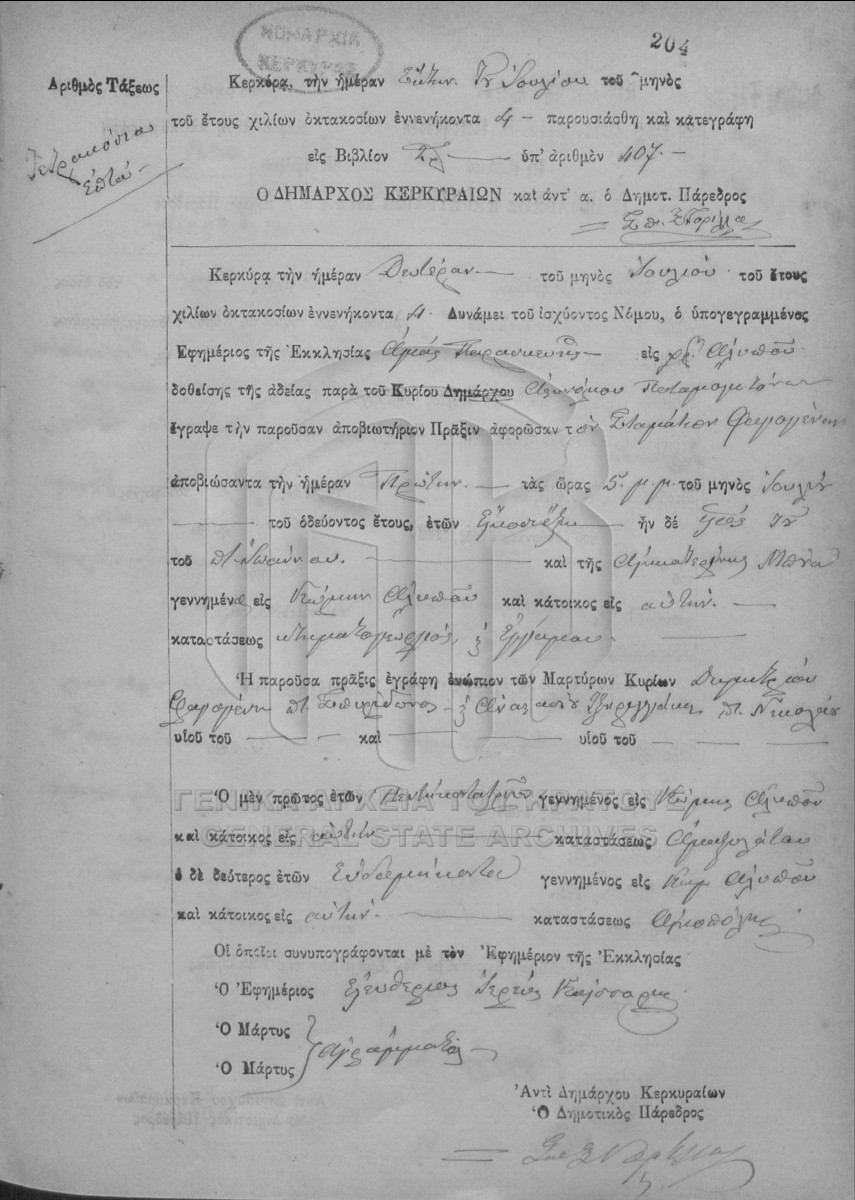 204
ΝΟΜΑΡΧΙΑ
ΚΕΡΚΥΡΑΣ
Ἀριθμὸς Τάξεως
Τετρακόσια
ἑπτὰ
Κερκύρα, τὴν ἡμέραν Ἕκτην Ἰουλίου τοῦ μηνὸς
τοῦ ἔτους χιλίων ὀκτακοσίων ἐννενήκοντα 4 παρουσιάσθη καὶ κατεγράφη
εἰς Βιβλίον ὑπ' ἀριθμὸν 407.
Ο ΔΗΜΑΡΧΟΣ ΚΕΡΚΥΡΑΙΩΝ καὶ ἀντ' α. ὁ Δημοτ. Πάρεδρος
Κερκύρα τὴν ἡμέραν Δευτέραν τοῦ μηνὸς Ἰουλίου τοῦ ἔτους
χιλίων ὀκτακοσίων ἐννενήκοντα 4. Δυνάμει τοῦ ἰσχύοντος Νόμου, ὁ ὑπογεγραμμένος
Ἐφημέριος τῆς Ἐκκλησίας Ἁγίας Παρασκευῆς εἰς χρ. Ἀλυποῦ
δοθείσης τῆς ἀδείας παρὰ τοῦ Κυρίου Δημάρχου Ἀστυνόμου Ποταμογειτόνων
ἔγραψε τὴν παροῦσαν ἀποβιωτήριον Πρᾶξιν ἀφορῶσαν τὸν Σταμάτιον
ἀποβιώσαντα τὴν ἡμέραν Πρώτην τὰς ὥρας 5 μ.μ. τοῦ μηνὸς Ἰουλίου
τοῦ ὁδεύοντος ἔτους, ἐτῶν Εἴκοσι ἓξ ἦν δὲ υἱὸς
τοῦ καὶ τῆς Αἰκατερίνης
γεννημένος εἰς Κώμην Ἀλυποῦ καὶ κάτοικος εἰς αὐτήν.
καταστάσεως κτηματογεωργὸς
Ἡ παροῦσα πρᾶξις ἐγράφη ἐνώπιον τῶν Μαρτύρων Κυρίων Δημητρίου
π. Σπυρίδωνος π. Νικολάου
υἱοῦ τοῦ καὶ υἱοῦ τοῦ
Ὁ μὲν πρῶτος ἐτῶν Πεντηκοντατριῶν γεννημένος εἰς Κώμην Ἀλυποῦ
καὶ κάτοικος εἰς αὐτήν καταστάσεως Ἁμαξηλάτου
ὁ δὲ δεύτερος ἐτῶν Εὐδομήκοντα γεννημένος εἰς Κώμ Ἀλυποῦ
καὶ κάτοικος εἰς αὐτήν. καταστάσεως
ΓΕΝΙΚΑ ΑΡΧΕΙΑ ΤΟΥ ΚΡΑΤΟΥΣ
GENERAL STATE ARCHIVES
Οἱ ὁποῖοι συνυπογράφονται μὲ τὸν Ἐφημέριον τῆς Ἐκκλησίας
Ὁ Ἐφημέριος Ἐλευθέριος Ἱερεὺς
Ὁ Μάρτυς
Ὁ Μάρτυς
ἀγράμματοι
Ἀντὶ Δημάρχου Κερκυραίων
Ὁ Δημοτικὸς Πάρεδρος